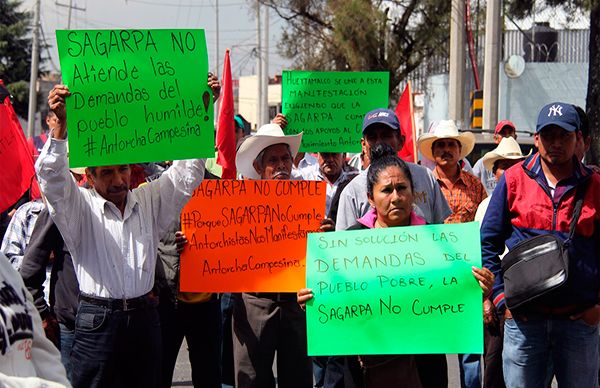 SAGARPA NO
Atiende las
Demandas del
pueblo humilde!
#Antorcha Campesina
HUEYTAMALCO SE UNE A ESTA
MANIFESTACIÓN
EXIGIENDO QUE LA
SAGARPA CUMPLA
CON LOS APOYOS AL
Movimiento Antorchista
#PorqueSAGARPANoCumple
AntorchistasNosManifestamos
Antorcha Campesina.
SIN SOLUCIÓN LAS
DEMANDAS DEL
PUEBLO POBRE, LA
SAGARPA NO CUMPLE
NY